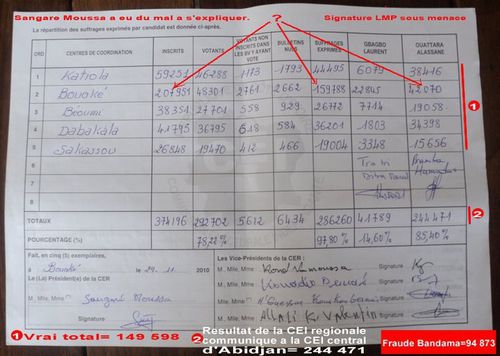 Sangare Moussa a eu du mal a s'expliquer.
?
Signature LMP sous menace
La répartition des suffrages exprimés par candidat est donnée ci-après.
ORD CENTRES DE COORDINATION INSCRITS VOTANTS VOTANTS NON INSCRITS DANS LES BV Y AYANT VOTE BULLETINS NULS SUFFRAGES EXPRIMES GBAGBO LAURENT OUATTARA ALASSANE
1 Katiola 59251 46288 1113 1793 44495 6079 38416
2 Bouaké 207951 48301 2761 2662 159788 22845
3 Béoumi 38351 27701 558 929 26772 7714 19058
4 Dabakala 41795 36795 618 584 36201 1803 34398
5 Sakassou 26848 19470 412 466 19004 3348 15656
6
7
8
TOTAUX 374196 292702 5612 6434 286260 41789 244471
POURCENTAGE (%) 78,22% 97,80% 14,60% 85,40%
Fait, en cinq (5) exemplaires,
à Bouaké le 29.11 2010
Le (La) Président(e) de la CER
M., Mlle, Mme Sangaré Moussa
Signature
Les Vice-Présidents de la CER :
M., Mlle, Mme Signature
M., Mlle, Mme Signature
M., Mlle, Mme Signature
M., Mlle, Mme Signature
1
2
1 Vrai total= 149 598
2 Resultat de la CEI regionale communique a la CEI central d'Abidjan= 244 471
Fraude Bandama=94 873